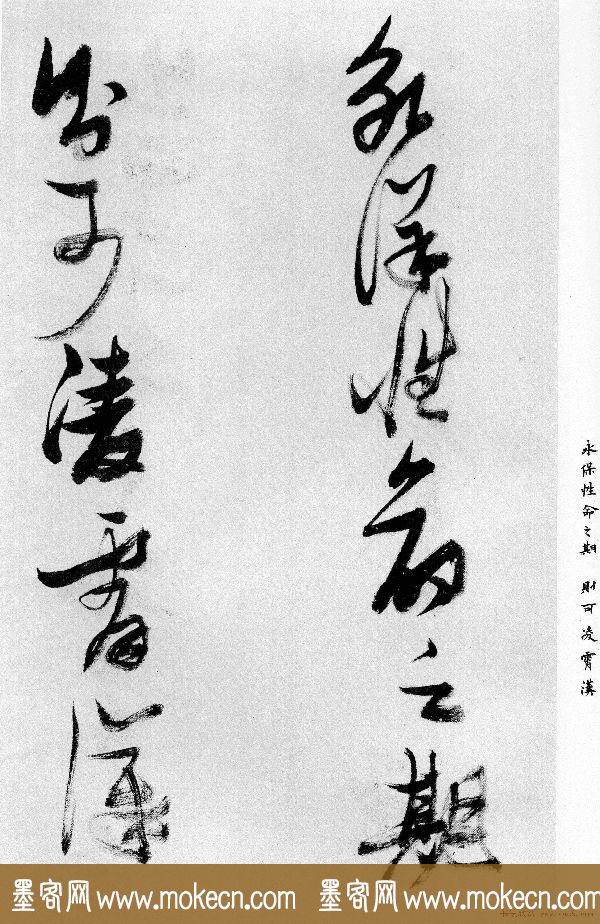 永保性命之期
則可凌霄漢
永保性命之期 則可凌霄漢
墨客网 www.mokecn.com 墨客网 www.mokecn.com